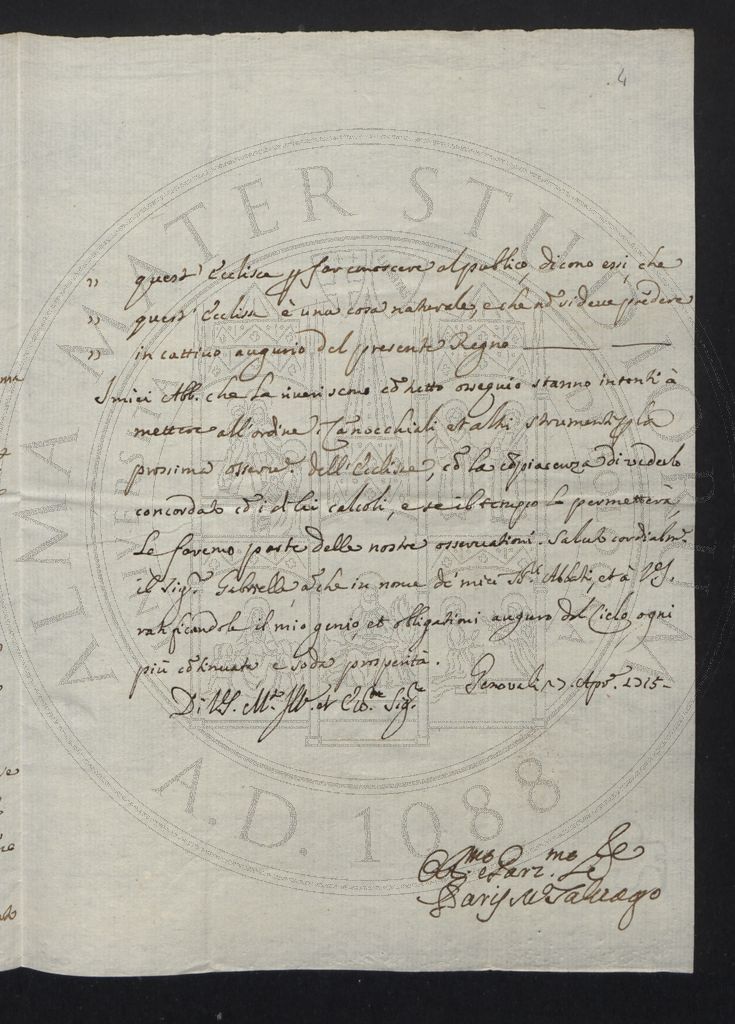 4
" quest' Ecclisse p far conoscere al publico, dicono essi, che
" quest' Ecclisse è una cosa naturale, e che nō si deve prēdere
" in cattivo augurio del presente Regno
I miei Abb. che La riveriscono cō tutto ossequio stanno intenti à
mettere all'ordine Canocchiali, et altri strumenti p la
prossima osserv. dell'Eclisse, cō la cōpiacenza di vederlo
concordato cō i di lei calcoli, e se il tempo lo permetterà,
Le faremo parte delle nostre osservationi. Saluto cordialm.
il Sig. Gabrielle à che in nome de' miei Abbati, et à V.S.
ratificandole il mio genio, et obligationi auguro dal Cielo ogni
più cōtinuata, e soda prosperità.
Genova li 27. Apr. 1715.
Di V.S. M. Ill. et Sig.
Paris M. Salvago
ALMA MATER STUDIORUM
A.D. 1088